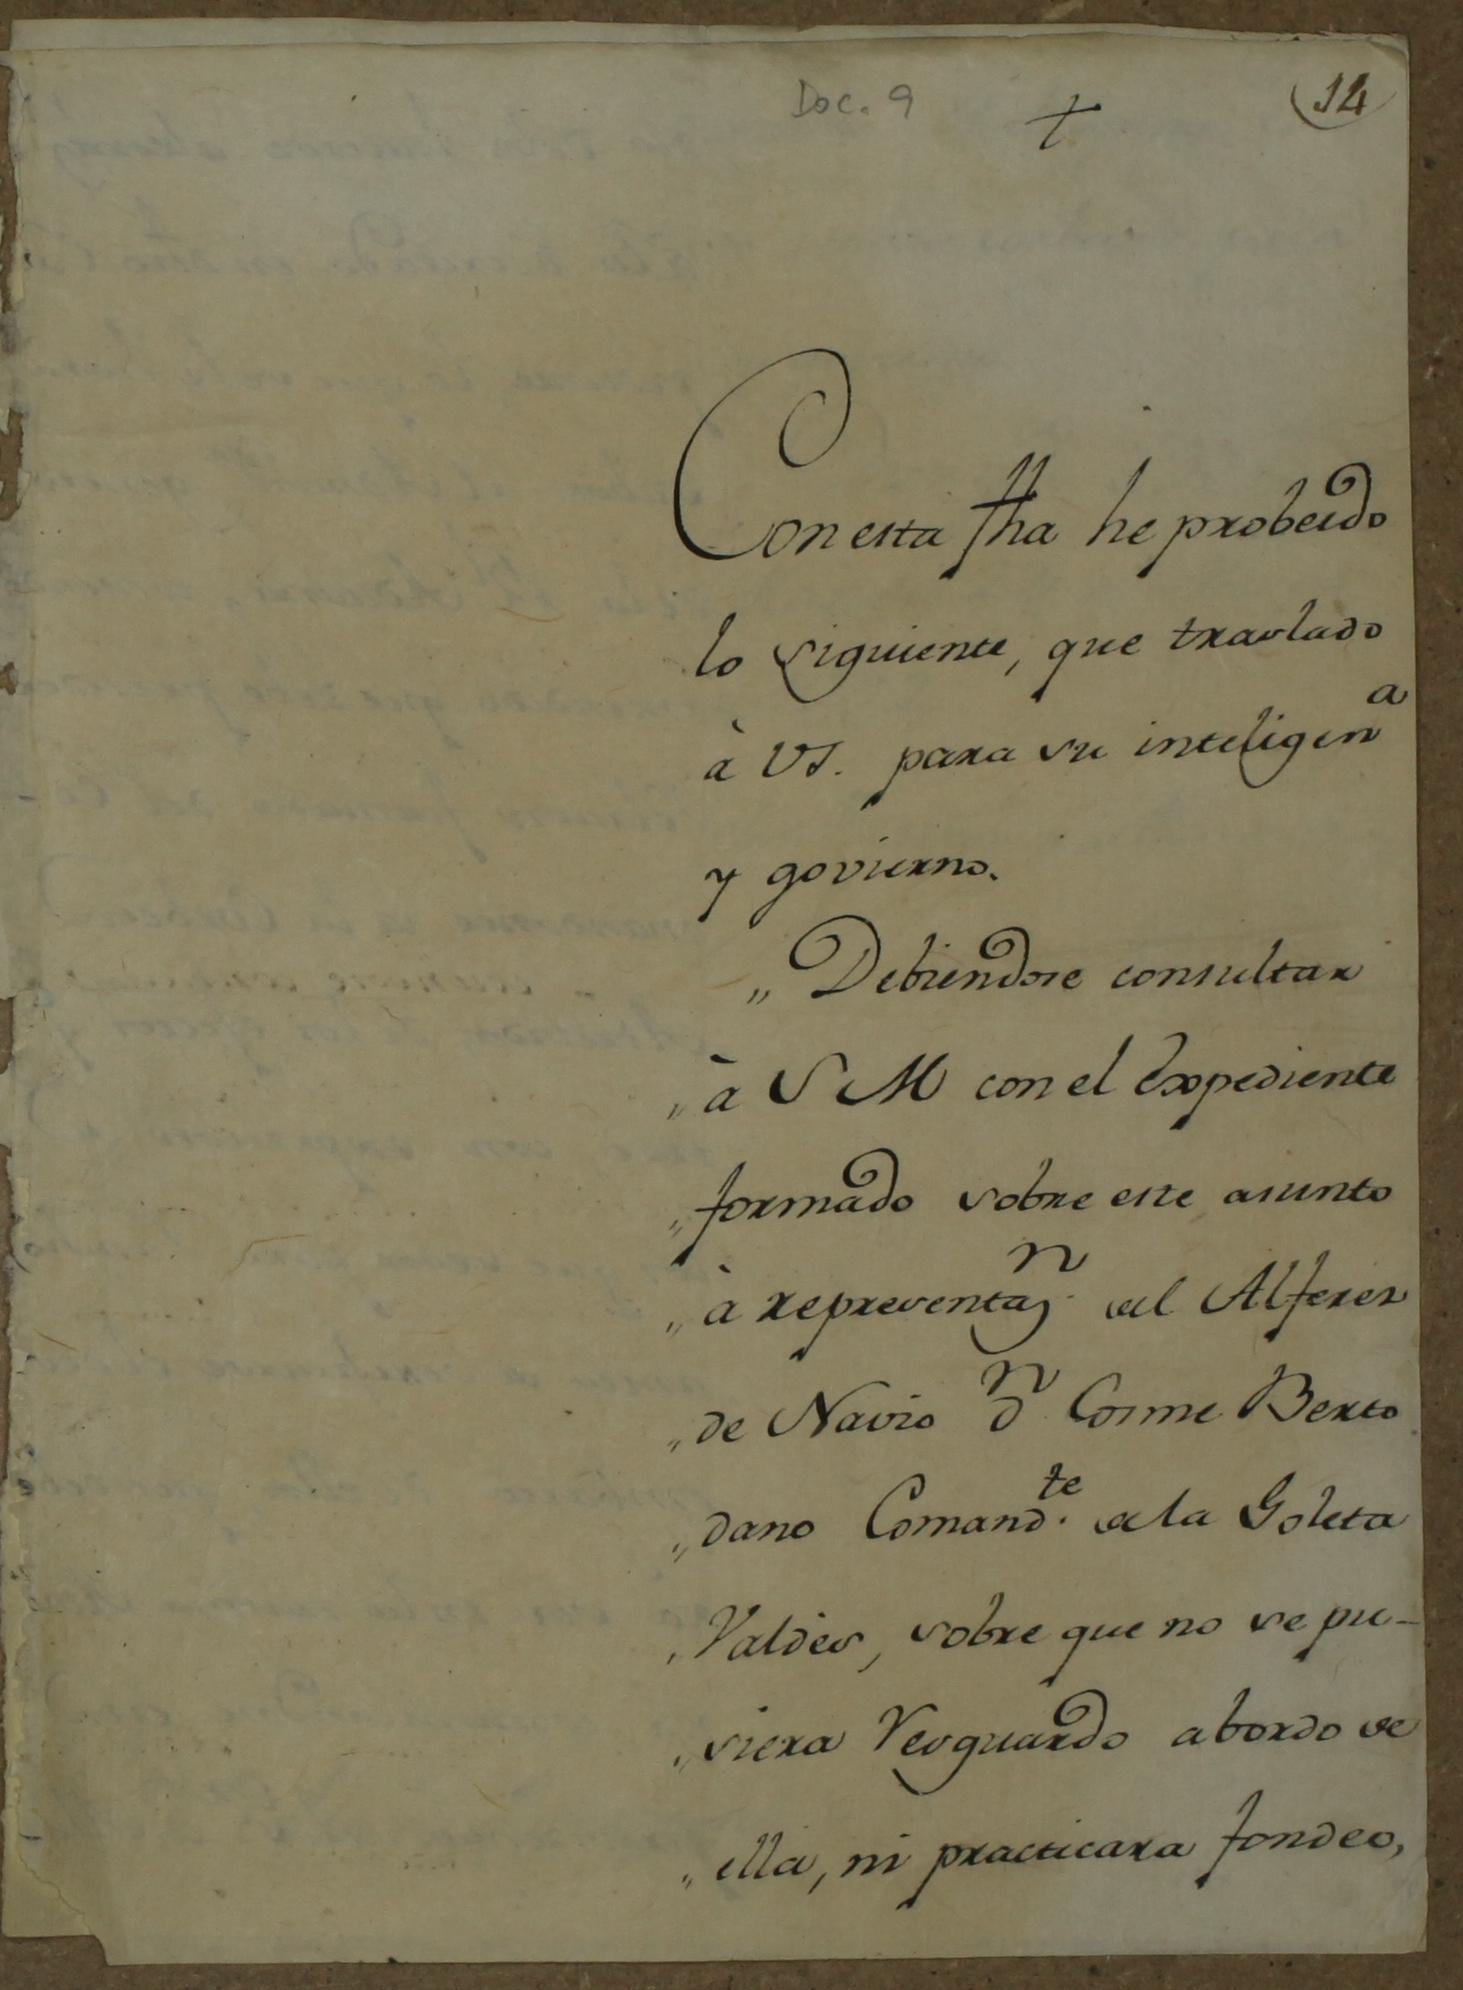 Doc. 9
†
14
Con esta fha he probeido
lo siguiente, que traslado
à VS. para su inteligen.a
y govierno.
„ Debiendose consultar
„ à S M con el Expediente
„ formado sobre este asunto
„ à representaz.n del Alferez
„ de Navio D.n Cosme Berto
„ dano Comand.te de la Goleta
„ Valdes, sobre que no se pu-
„ siera Resguardo abordo de
„ ella, ni practicara fondeo,